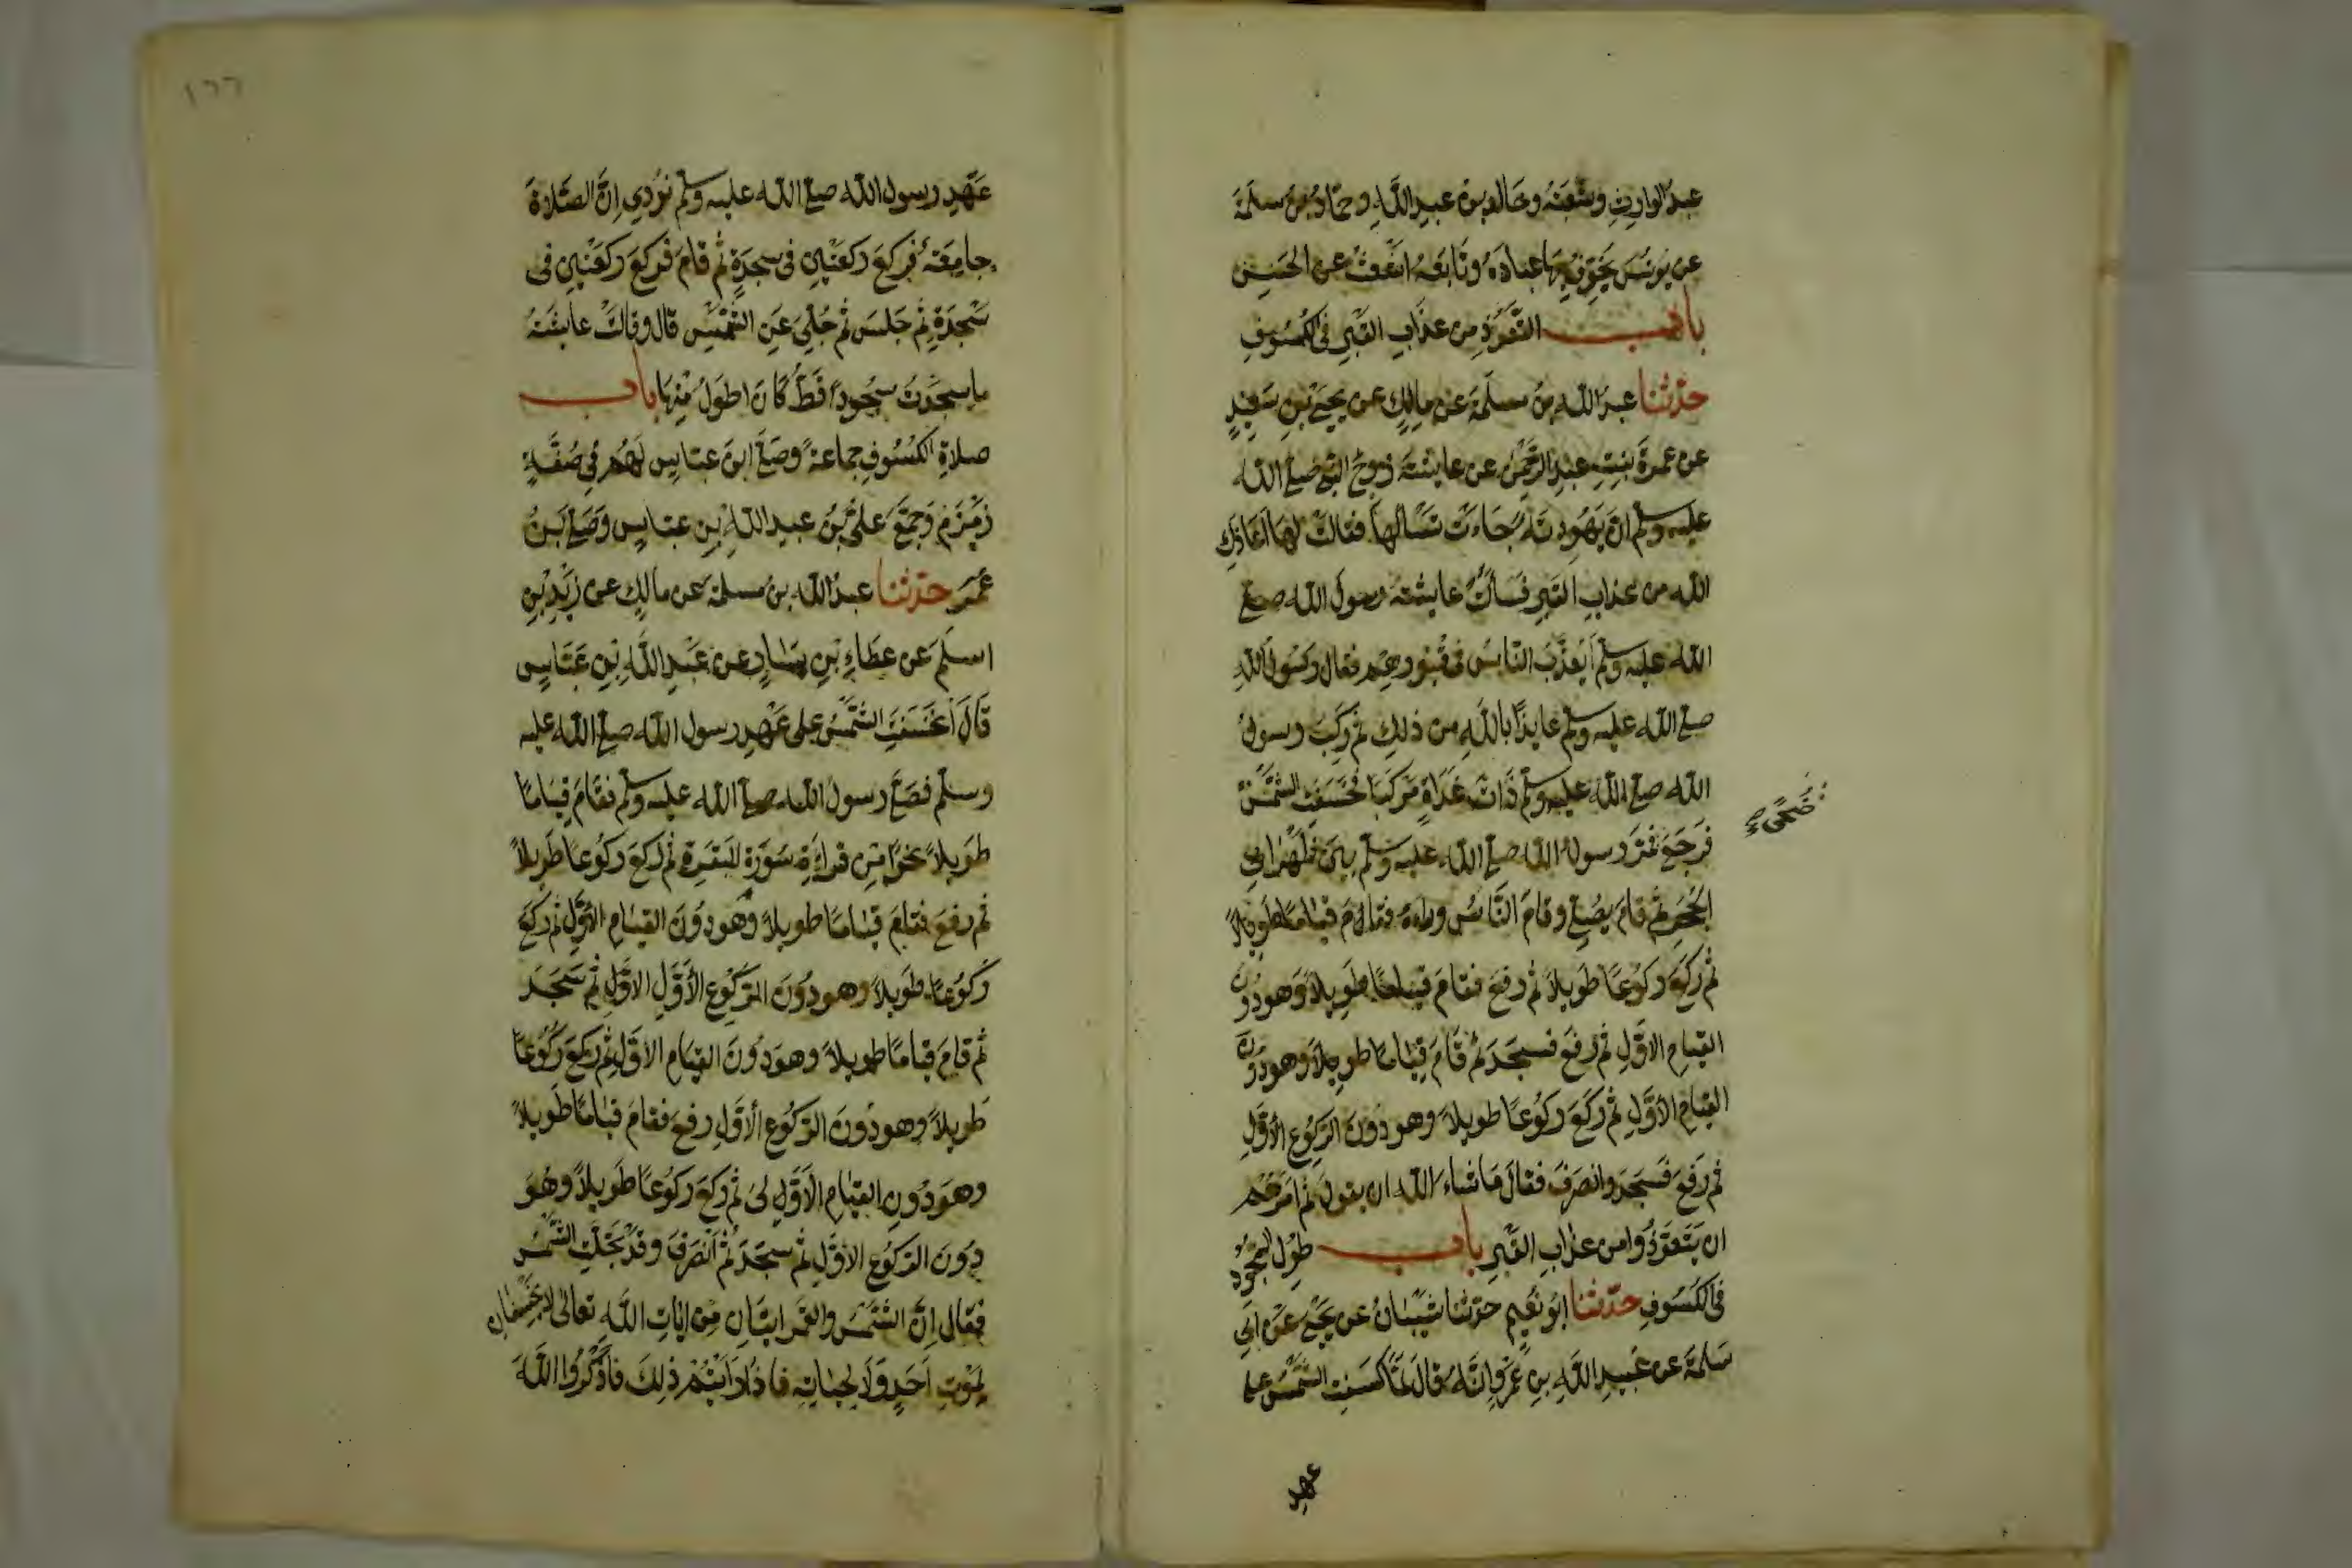 عبدُ الوارِثِ وشعْبَةُ وخَالدبن عبدِ اللَّهِ وحمّادُ بنُ سلَمَةَ
عن يُونُسَ يُخَوِّفُ بِهَا عبادَهُ وتَابَعَهُ اشْعَثُ عن الحَسَنِ
باب التَّعَوُّذِ من عذَابِ القَبْرِ فى الكُسُوفِ
حدّثنا عبدُ اللهِ بنُ مسلَمَةَ عن مالِكٍ عن يحيَى بْنِ سَعِيْدٍ
عن عَمْرَةَ بِنتِ عبدِ الرَّحْمٰنِ عن عايشَةَ زَوْجِ النَّبِيِّ صَلَّى اللهُ
عليه وسلّم انّ يَهُودِيَّةً جَاءَتْ تَسْأَلُهَا فقالَتْ لهَا اَعَاذَكِ
الله من عذابِ القبرِ فَسَألَتْ عايشةُ رسولَ الله صلّى
الله عليه وسلّم اَيُعَذَّبُ النّاسُ فى قُبُورِهِم فقال رَسُولُ اللهِ
صلّى الله عليه وسلّم عايذًا باللّهِ من ذٰلِكِ ثم رَكِبَ رسولُ
الله صلى الله عليه وسلّم ذَاتَ غَدَاةٍ مَرْكَبًا فخَسَفَتِ الشَّمْسُ
ضُحًى
فَرَجَعَ فمَرَّ رسولُ الله صلى الله عليه وسلّم بينَ ظَهْرَانَيِ
الحُجَرِ ثم قامَ يصُلِّي وقامَ النَّاسُ وراءهُ فقام قيامًا طَوِيلاً
ثم رَكَعَ ركُوعًا طَوِيلاً ثم رفعَ فقامَ قيامًا طَوِيلاً وَهودُونَ
القيامِ الاوّلِ ثم رفعَ فسجَدَ ثم قامَ قِيامًا طويلاً وهودُونَ
القيامِ الأوّلِ ثم ركَعَ ركُوعًا طويلاً وهودُونَ الرّكُوعِ الأوّلِ
ثم رَفعَ فَسَجَدَ وانصَرَفَ فقالَ مَاشاءَ الله ان يقولَ ثم امَرَهُم
ان يَتَعَوَّذُوا من عذابِ القبْرِ باب طُوْلِ السّجُودِ
فى الكسُوفِ حدّثنا ابُو نُعَيمٍ حدّثنا شَيْبانُ عن يحْيٰى عَنْ ابى
سَلمَةَ عن عَبدِ اللَّهِ بنِ عَمْرٍو انّهُ قال لمّا كسَفَتِ الشّمْسُ على
عهد
١٦٦
عَهْدِ رسول الله صلى الله عليه وسلّم نُوْدِي اِنَّ الصَّلاةَ
جامِعَةٌ فركَعَ ركعَتْينِ فى سجدَةٍ ثم قامَ فركَعَ ركعَتْينِ فى
سَجْدَةٍ ثم جَلسَ ثم جُلِّيَ عَنِ الشّمْسِ قال وقالَتْ عايشَةُ
ماسجَدْتُ سجُودًا قَطُّ كانَ اطوَلَ مِنْهَا باب
صلاةِ الكسُوفِ جماعَةً وصَلَّى ابنُ عبّاسٍ لَهُم فِي صُفَّةِ
زَمْزَمَ وَجَمَّعَ عَلىُّ بْنُ عبدِ اللّهِ بنِ عبّاسٍ وصَلّى بنُ
عُمَرَ حدّثنا عبدُ اللهِ بنُ مسلمةَ عن مالِكٍ عن زَيْدِ بْنِ
اسلَمَ عن عطاءِ بْنِ يسَارٍ عن عَبْدِ اللّهِ بْنِ عَبّاسٍ
قَالَ انخَسَفَتِ الشّمْسُ على عَهْدِ رسول الله صلى الله عليه
وسلّم فصَلَّى رسولُ الله صلى الله عليه وسلّم فقَامَ قِيَامًا
طوِيلاً نحوًا مّن قراءَةِ سُورَةِ البَقَرَةِ ثم ركعَ ركُوعًا طَوِيلاً
ثم رفعَ فقامَ قيامًا طويلاً وهو دُونَ القيامِ الأوّلِ ثم رَكَعَ
رُكُوعًا طَوِيلاً وهودُونَ الرّكُوعِ الأوّلِ الاوّلِ ثم سَجَدَ
ثم قامَ قيامًا طويلاً وهودُونَ القيَامِ الاوّلِ ثم ركَعَ ركُوعًا
طويلاً وهودُونَ الرّكُوعِ الأوّلِ رفعَ فقامَ قيامًا طَوِيلاً
وهودُونَ القيَامِ الاوّلِ ثم ركعَ ركُوعًا طَويلاً وهُوَ
دُونَ الرّكُوعِ الاوّلِ ثم سجَدَ ثم انْصَرَفَ وقدْ تَجَلَّتِ الشّمْسُ
فقال اِنَّ الشّمْسَ والقمرَ ايتَانِ مِنْ ايٰاتِ اللّهِ تعالى لا يَخْسِفانِ
لِمَوْتِ اَحَدٍ وَلَا لِحيَاتِهِ فاذَا رَاَيْتُمْ ذٰلِكَ فاذْكُرُوا اللّهَ